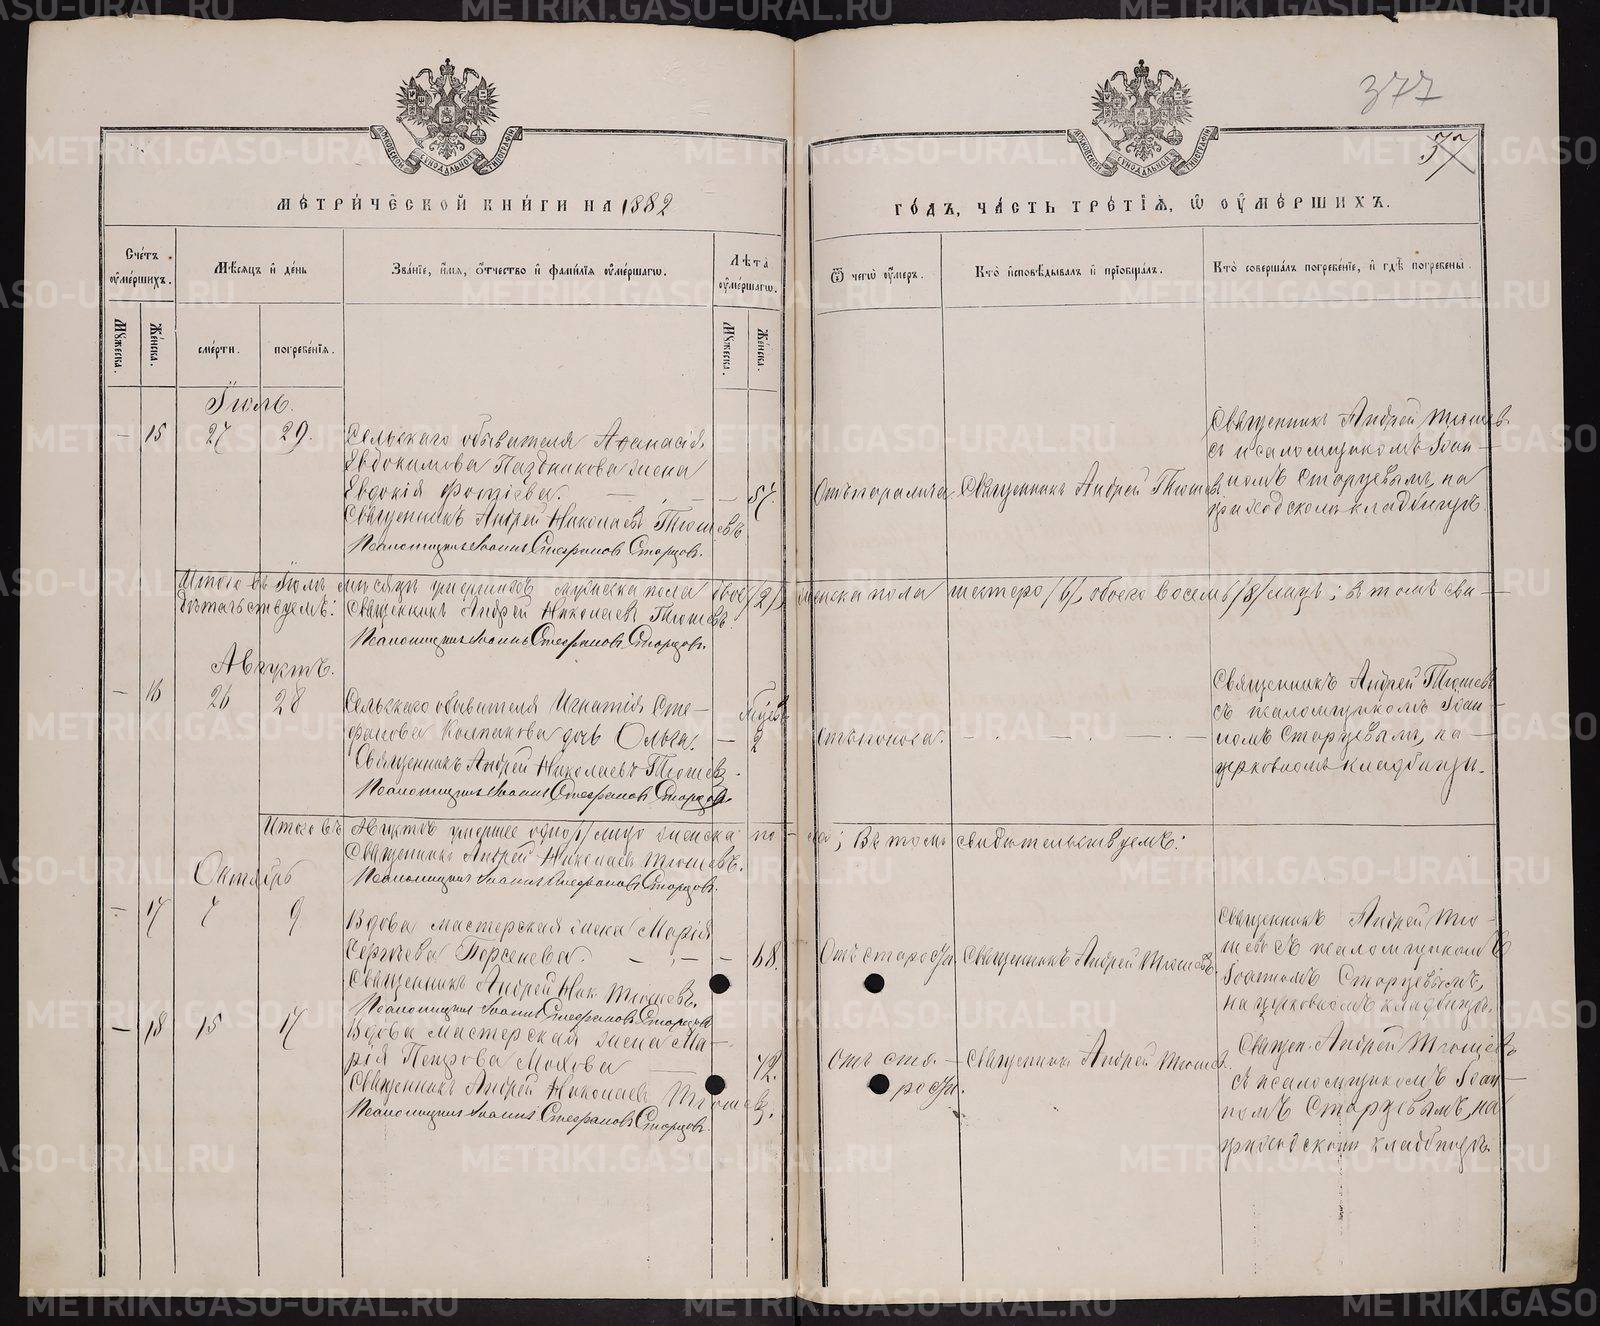 377
37
МЕТРИЧЕСКОЙ КНИГИ НА 1882
ГОДЪ, ЧАСТЬ ТРЕТІЯ, Ѿ ОУМЕРШИХЪ.
Счетъ оумершихъ.
Мѣсяцъ и день
Званіе, имя, отчество и фамилія оумершагѡ.
Лѣта оумершагѡ.
Ѿ чегѡ оумеръ.
Кто исповѣдывалъ и пріобщалъ.
Кто совершалъ погребеніе, и гдѣ погребены.
Мужеска.
Женска.
смерти.
погребенія.
Мужеска.
Женска.
Іюль.
— 15 27 29.
Сельскаго обывателя Аѳанасія
Евдокимова Паздникова жена
Евдокія Фотіева. — — — 57.
Священникъ Андрей Николаевъ Тюшевъ
Псаломщикъ Іоаннъ Стефановъ Старцовъ.
Отъ паралича
Священникъ Андрей Тюшевъ
Священникъ Андрей Тюшевъ
съ псаломщикомъ Іоан-
номъ Старцевымъ, на
приходскомъ кладбищѣ.
Итого въ Іюлѣ мѣсяцѣ умершихъ мужеска пола двое /2/, женска пола шестеро /6/, обоего восемь /8/ лицъ; въ томъ сви-
дѣтельствуемъ: Священникъ Андрей Николаевъ Тюшевъ.
Псаломщикъ Іоаннъ Стефановъ Старцовъ.
Августъ.
— 16 26 28
Сельскаго обывателя Игнатія Сте-
фанова Колпакова дочь Ольга. —
Священникъ Андрей Николаевъ Тюшевъ.
Псаломщикъ Іоаннъ Стефановъ Старцовъ.
2
Отъ поноса.
— . — . — . —
Священникъ Андрей Тюшевъ
съ псаломщикомъ Іоан-
номъ Старцевымъ, на
церковномъ кладбищѣ.
Итого въ Августѣ умершее одно /1/ лицо женска по-ла; Въ томъ свидѣтельствуемъ:
Священникъ Андрей Николаевъ Тюшевъ.
Псаломщикъ Іоаннъ Стефановъ Старцовъ.
Октябрь
— 17 7 9
Вдова мастерская жена Марія
Сергѣева Порсенева. — — — 68.
Священникъ Андрей Ник. Тюшевъ.
Псаломщикъ Іоаннъ Стефановъ Старцовъ
Отъ старости.
Священникъ Андрей Тюшевъ.
Священникъ Андрей Тю-
шевъ съ псаломщикомъ
Іоанномъ Старцевымъ,
на церковномъ кладбищѣ.
— 18 15 17
Вдова мастерская жена Ма-
рія Петрова Мохова — 72.
Священникъ Андрей Николаевъ Тюшевъ.
Псаломщикъ Іоаннъ Стефановъ Старцовъ.
Отъ ста-
рости.
Священникъ Андрей Тюшев.
Священ. Андрей Тюшевъ
съ псаломщикомъ Іоан-
номъ Старцевымъ, на
приходскомъ кладбищѣ.
METRIKI.GASO-URAL.RU